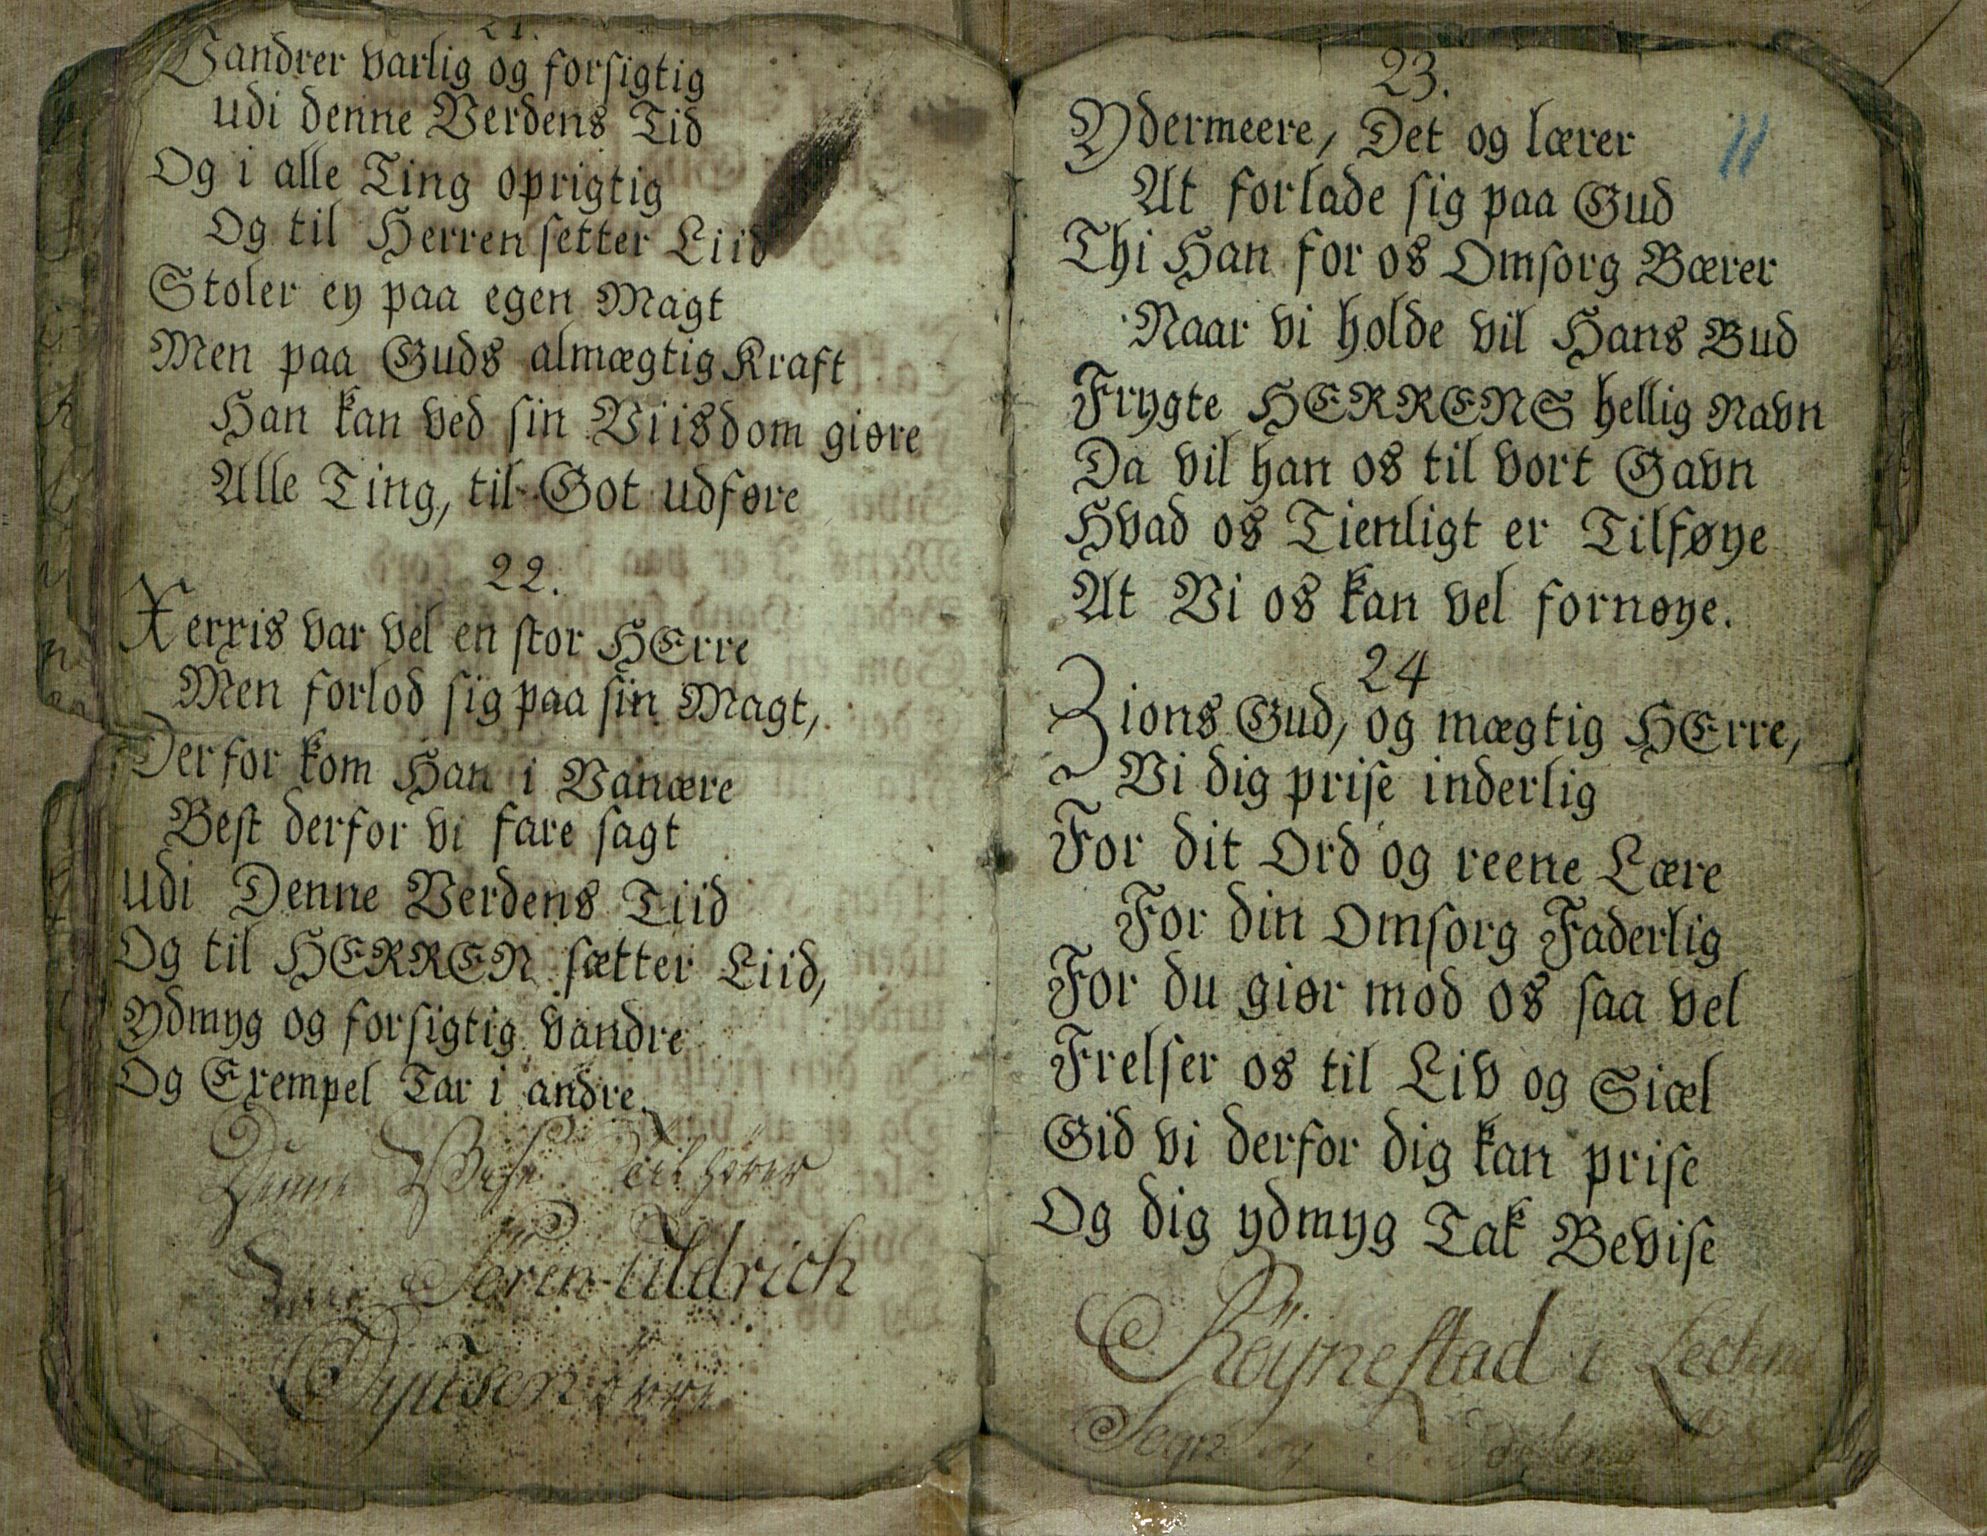 21.
Vandrer varlig og forsigtig
udi denne Verdens Tid
Og i alle Ting oprigtig
Og til Herren setter Liid
Stoler ey paa egen Magt
Men paa Guds almægtig Kraft
Han kan ved sin Viisdom giøre
Alle Ting, til Got udføre
22.
Xerxis var vel en stor HErre
Men forlod sig paa sin Magt,
Derfor kom Han i Vanære
Best derfor vi fare sagt
udi Denne Verdens Tiid
Og til HERREN sætter Liid,
Ydmyg og forsigtig vandre
Og Exempel Tar i andre.
Denne tilhører
Sören Uldrich
23.
Ydermeere, Det og lærer
At forlade sig paa Gud
Thi Han for os Omsorg Bærer
Naar vi holde vil Hans Bud
Frygte HERRENS hellig Navn
Da vil han os til vort Gavn
Hvad os Tienligt er Tilføye
At Vi os kan vel fornøye.
11
24
Zions Gud, og mægtig HErre,
Vi dig prise inderlig
For dit Ord og reene Lære
For din Omsorg Faderlig
For du giør mod os saa vel
Frelser os til Liv og Siæl
Gid vi derfor dig kan prise
Og dig ydmyg Tak Bevise
Röijnestad i
Sogn og